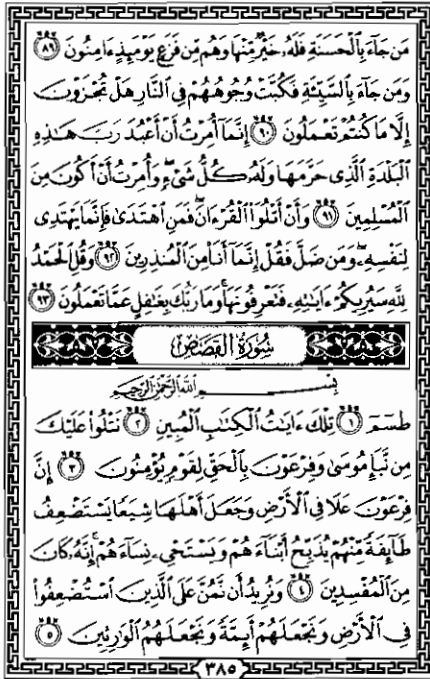 مَن جَآءَ بِٱلْحَسَنَةِ فَلَهُۥ خَيْرٌ مِّنْهَا وَهُم مِّن فَزَعٍ يَوْمَئِذٍ ءَامِنُونَ ٨٩
وَمَن جَآءَ بِٱلسَّيِّئَةِ فَكُبَّتْ وُجُوهُهُمْ فِى ٱلنَّارِ هَلْ تُجْزَوْنَ
إِلَّا مَا كُنتُمْ تَعْمَلُونَ ٩٠ إِنَّمَآ أُمِرْتُ أَنْ أَعْبُدَ رَبَّ هَٰذِهِ
ٱلْبَلْدَةِ ٱلَّذِى حَرَّمَهَا وَلَهُۥ كُلُّ شَىْءٍ وَأُمِرْتُ أَنْ أَكُونَ مِنَ
ٱلْمُسْلِمِينَ ٩١ وَأَنْ أَتْلُوَا۟ ٱلْقُرْءَانَ فَمَنِ ٱهْتَدَىٰ فَإِنَّمَا يَهْتَدِى
لِنَفْسِهِۦ وَمَن ضَلَّ فَقُلْ إِنَّمَآ أَنَا۠ مِنَ ٱلْمُنذِرِينَ ٩٢ وَقُلِ ٱلْحَمْدُ
لِلَّهِ سَيُرِيكُمْ ءَايَٰتِهِۦ فَتَعْرِفُونَهَا وَمَا رَبُّكَ بِغَٰفِلٍ عَمَّا تَعْمَلُونَ ٩٣
سُورَةُ القَصَصِ
بِسْمِ ٱللَّهِ ٱلرَّحْمَٰنِ ٱلرَّحِيمِ
طسٓمٓ ١ تِلْكَ ءَايَٰتُ ٱلْكِتَٰبِ ٱلْمُبِينِ ٢ نَتْلُوا۟ عَلَيْكَ
مِن نَّبَإِ مُوسَىٰ وَفِرْعَوْنَ بِٱلْحَقِّ لِقَوْمٍ يُؤْمِنُونَ ٣ إِنَّ
فِرْعَوْنَ عَلَا فِى ٱلْأَرْضِ وَجَعَلَ أَهْلَهَا شِيَعًا يَسْتَضْعِفُ
طَآئِفَةً مِّنْهُمْ يُذَبِّحُ أَبْنَآءَهُمْ وَيَسْتَحْىِۦ نِسَآءَهُمْ إِنَّهُۥ كَانَ
مِنَ ٱلْمُفْسِدِينَ ٤ وَنُرِيدُ أَن نَّمُنَّ عَلَى ٱلَّذِينَ ٱسْتُضْعِفُوا۟
فِى ٱلْأَرْضِ وَنَجْعَلَهُمْ أَئِمَّةً وَنَجْعَلَهُمُ ٱلْوَٰرِثِينَ ٥
٣٨٥